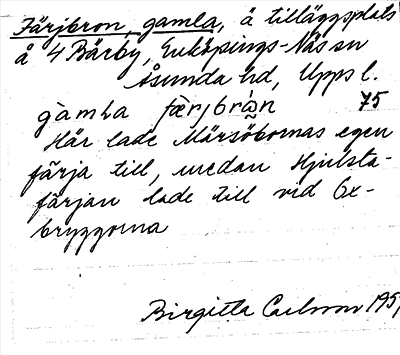 Färjbron, gamla, ä tilläggsplats
å 4 Bärby, Enköpings-Näs sn
Åsunda hd, Upps l.
gàmLa fæ̀rjbrón 75
Här lade Märsöbornas egen
färja till, medan Hjulsta-
färjan lade till vid Ox-
bryggorna
Birgitta Carlsson 195